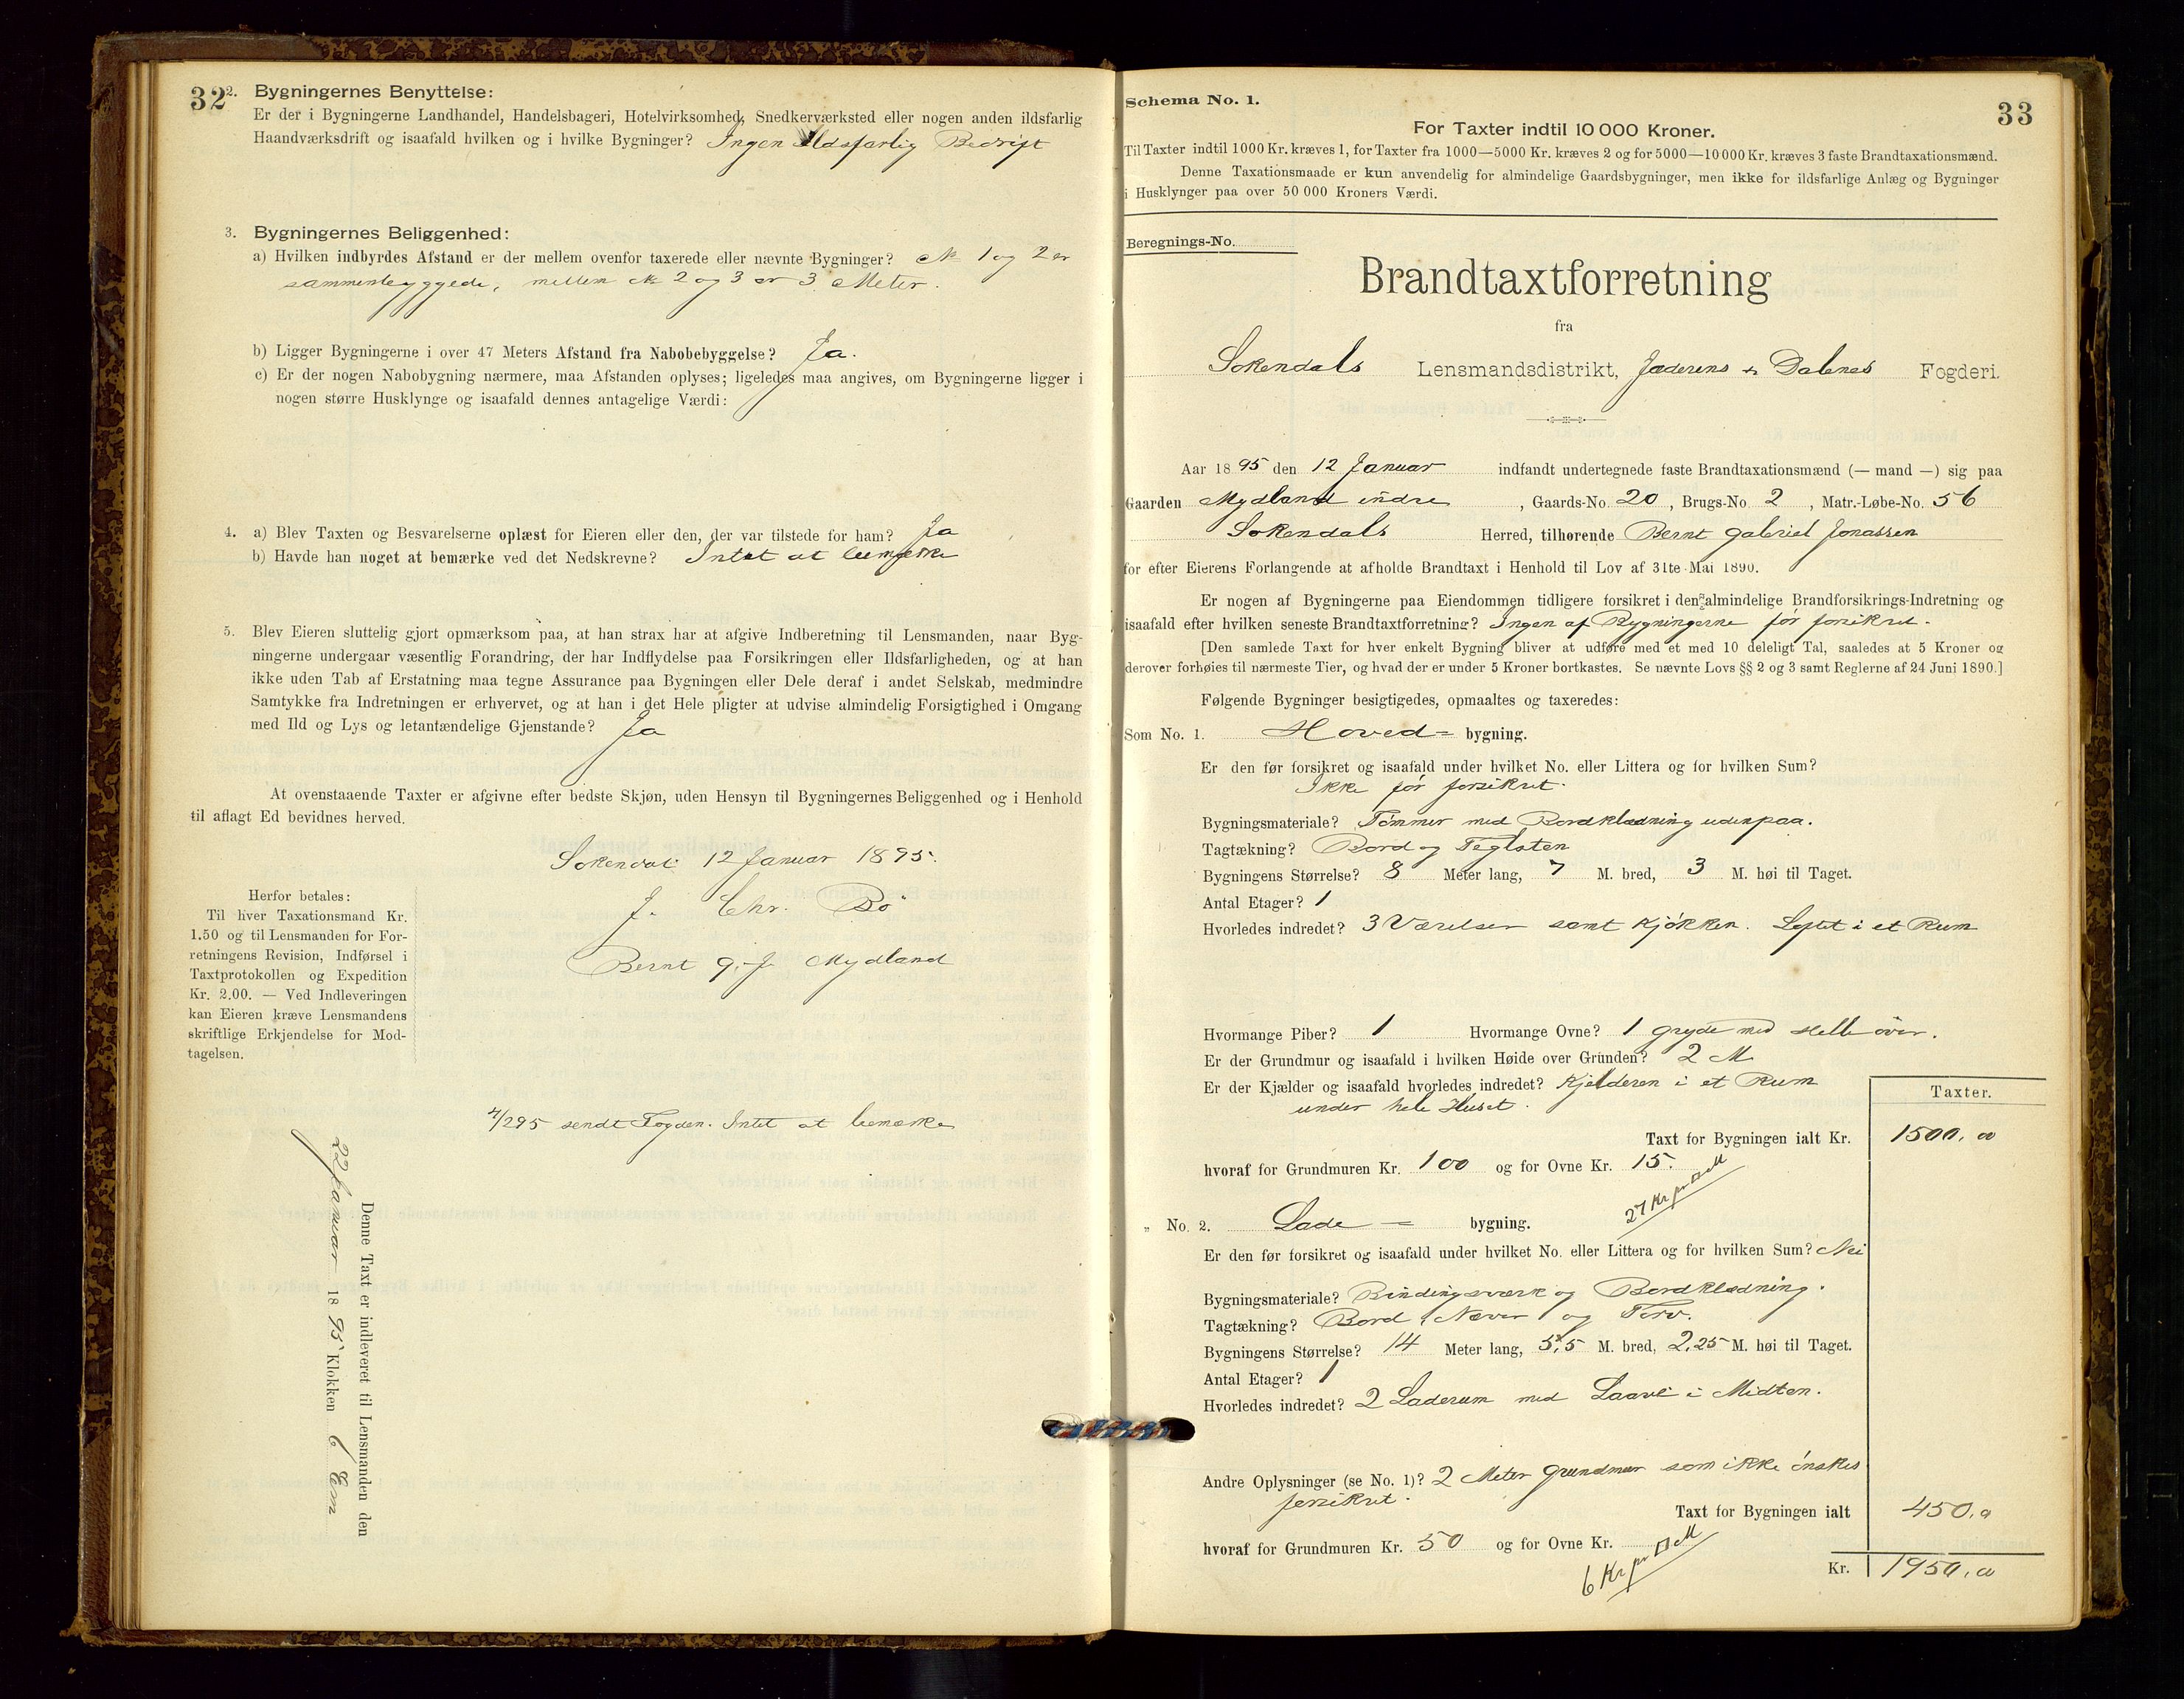 32
2. Bygningernes Benyttelse:
Er der i Bygningerne Landhandel, Handelsbageri, Hotelvirksomhed, Snedkerværksted eller nogen anden ildsfarlig
Haandværksdrift og isaafald hvilken og i hvilke Bygninger? Ingen Ildsfarlig Bedrift
3. Bygningernes Beliggenhed:
a) Hvilken indbyrdes Afstand er der mellem ovenfor taxerede eller nævnte Bygninger? № 1 og 2 er
sammenbyggede, mellem № 2 og 3 er 3 Meter.
b) Ligger Bygningerne i over 47 Meters Afstand fra Nabobebyggelse? Ja.
c) Er der nogen Nabobygning nærmere, maa Afstanden oplyses; ligeledes maa angives, om Bygningerne ligger i
nogen større Husklynge og isaafald dennes antagelige Værdi:
4. a) Blev Taxten og Besvarelserne oplæst for Eieren eller den, der var tilstede for ham? Ja
b) Havde han noget at bemærke ved det Nedskrevne? Intet at bemærke
5. Blev Eieren sluttelig gjort opmærksom paa, at han strax har at afgive Indberetning til Lensmanden, naar Byg-
ningerne undergaar væsentlig Forandring, der har Indflydelse paa Forsikringen eller Ildsfarligheden, og at han
ikke uden Tab af Erstatning maa tegne Assurance paa Bygningen eller Dele deraf i andet Selskab, medmindre
Samtykke fra Indretningen er erhvervet, og at han i det Hele pligter at udvise almindelig Forsigtighed i Omgang
med Ild og Lys og letantændelige Gjenstande? Ja
At ovenstaaende Taxter er afgivne efter bedste Skjøn, uden Hensyn til Bygningernes Beliggenhed og i Henhold
til aflagt Ed bevidnes herved.
Sokendal 12 Januar 1895.
J. Chr. Bö
Bernt G. J. Mydland
Herfor betales:
Til hver Taxationsmand Kr.
1.50 og til Lensmanden for For-
retningens Revision, Indførsel i
Taxtprotokollen og Expedition
Kr. 2.00. — Ved Indleveringen
kan Eieren kræve Lensmandens
skriftlige Erkjendelse for Mod-
tagelsen.
4/2 95 sendt Fogden. Intet at bemærke
Denne Taxt er indleveret til Lensmanden den
22 Januar 1895 Klokken 6 Em
Schema No. 1.
33
For Taxter indtil 10 000 Kroner.
Til Taxter indtil 1000 Kr. kræves 1, for Taxter fra 1000—5000 Kr. kræves 2 og for 5000—10 000 Kr. kræves 3 faste Brandtaxationsmænd.
Denne Taxationsmaade er kun anvendelig for almindelige Gaardsbygninger, men ikke for ildsfarlige Anlæg og Bygninger
i Husklynger paa over 50 000 Kroners Værdi.
Beregnings-No.
Brandtaxtforretning
fra
Sokendals Lensmandsdistrikt, Jæderens & Dalenes Fogderi.
Aar 1895 den 12 Januar indfandt undertegnede faste Brandtaxationsmænd (— mand —) sig paa
Gaarden Mydland indre, Gaards-No. 20, Brugs-No. 2, Matr.-Løbe-No. 56
Sokendals Herred, tilhørende Bernt Gabriel Jonassen
for efter Eierens Forlangende at afholde Brandtaxt i Henhold til Lov af 31te Mai 1890.
Er nogen af Bygningerne paa Eiendommen tidligere forsikret i den almindelige Brandforsikrings-Indretning og
isaafald efter hvilken seneste Brandtaxtforretning? Ingen af Bygningerne før forsikret.
[Den samlede Taxt for hver enkelt Bygning bliver at udføre med et med 10 deleligt Tal, saaledes at 5 Kroner og
derover forhøies til nærmeste Tier, og hvad der er under 5 Kroner bortkastes. Se nævnte Lovs §§ 2 og 3 samt Reglerne af 24 Juni 1890.]
Følgende Bygninger besigtigedes, opmaaltes og taxeredes:
Som No. 1. Hoved= bygning.
Er den før forsikret og isaafald under hvilket No. eller Littera og for hvilken Sum?
Ikke før forsikret.
Bygningsmateriale? Tømmer med Bordklædning udenpaa.
Tagtækning? Bord og Teglsten
Bygningens Størrelse? 8 Meter lang, 7 M. bred, 3 M. høi til Taget.
Antal Etager? 1
Hvorledes indredet? 3 Værelser samt Kjøkken. Loftet i et Rum
Hvormange Piber? 1 Hvormange Ovne? 1 gryde med Helle over.
Er der Grundmur og isaafald i hvilken Høide over Grunden? 2 M
Er der Kjælder og isaafald hvorledes indredet? Kjelderen i et Rum
under hele Huset.
Taxter.
Taxt for Bygningen ialt Kr. 1500,00
hvoraf for Grundmuren Kr. 100 og for Ovne Kr. 15.
27 Kr pr □ M
" No. 2. Lade= bygning.
Er den før forsikret og isaafald under hvilket No. eller Littera og for hvilken Sum? Nei
Bygningsmateriale? Bindingsværk og Bordklædning.
Tagtækning? Bord, Næver og Torv.
Bygningens Størrelse? 14 Meter lang, 5,5 M. bred, 2,25 M. høi til Taget.
Antal Etager? 1
Hvorledes indredet? 2 Laderum med Laave i Midten.
Andre Oplysninger (se No. 1)? 2 Meter grundmur som ikke ønskes
forsikret.
Taxt for Bygningen ialt 450,0
hvoraf for Grundmuren Kr. 50 og for Ovne Kr.
6 Kr pr □ M
Kr. 1950,00